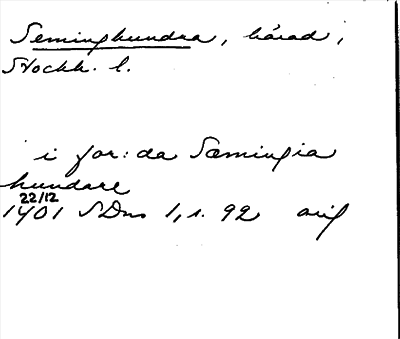 Seminghundra, härad,
Stockh. l.
i for:da Sæmingia
hundare
22/12
1401 SDns 1, s. 92 orig